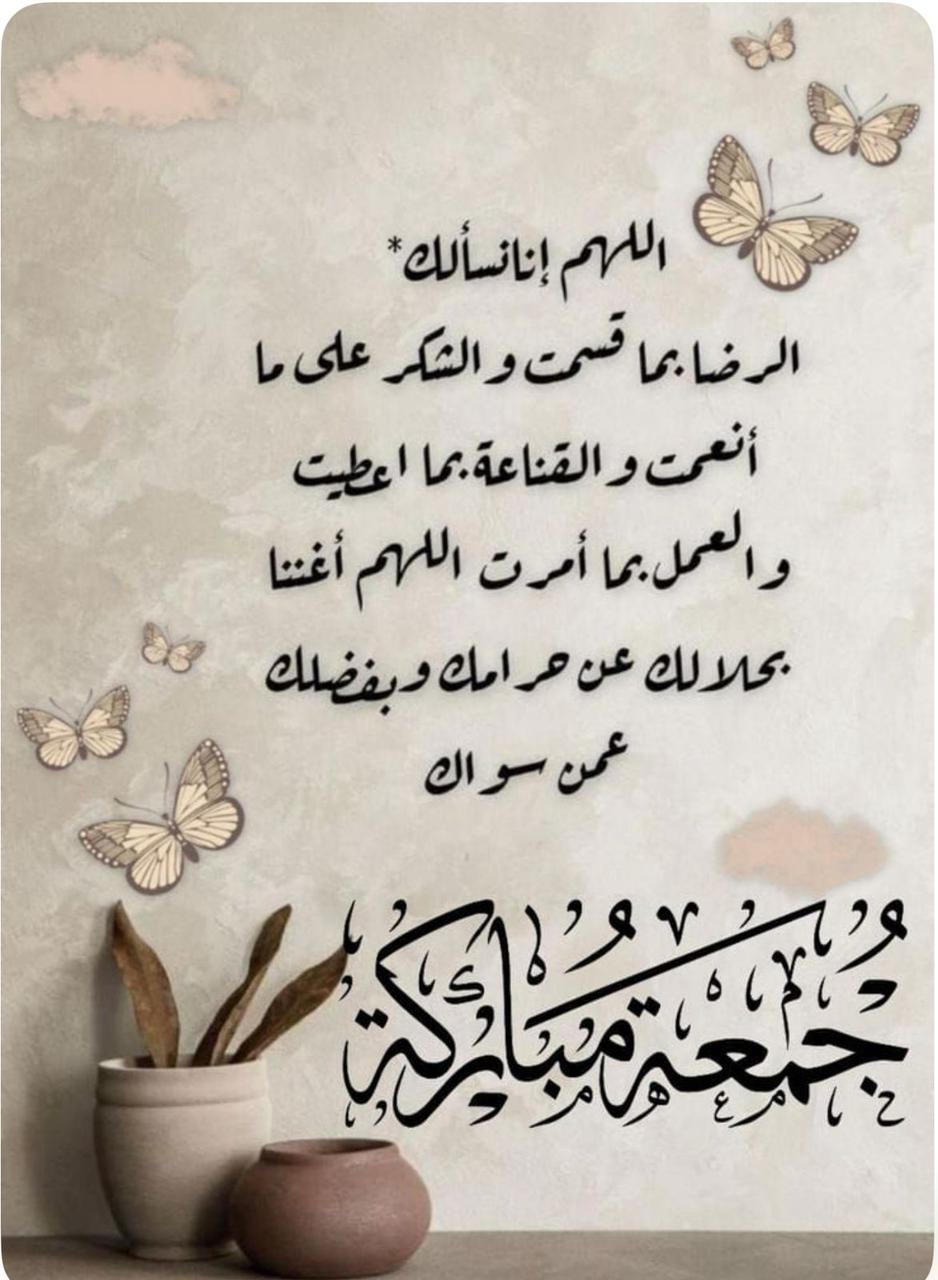 اللهم إنا نسألك*
الرضا بما قسمت و الشكر على ما
أنعمت و القناعة بما اعطيت
و العمل بما أمرت اللهم أغننا
بحلالك عن حرامك وبفضلك
عمن سواك
جُمعة مُباركة